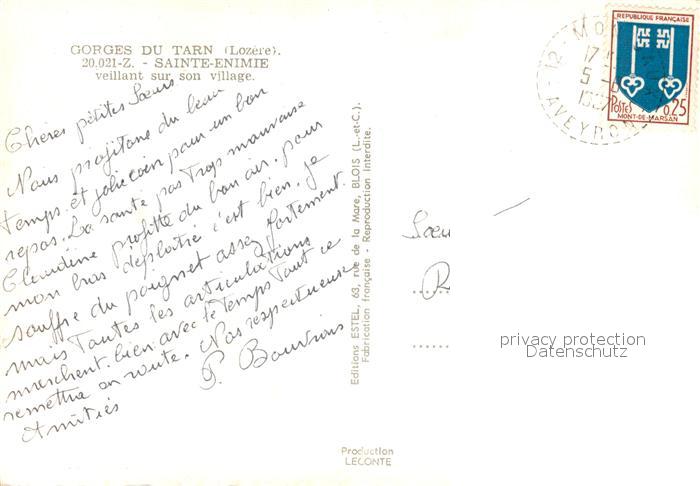 GORGES DU TARN (Lozère).
20.021-Z. - SAINTE-ENIMIE
veillant sur son village.
Chères petites Sœurs
Nous profitons du beau
temps et joli coin pour un bon
repos. La santé pas trop mauvaise
Claudine profite du bon air. pour
mon bras déplatré c'est bien. je
souffre du poignet assez fortement
mais toutes les articulations
marchent bien avec le temps tout ce
remettra en route. Nos respectueuse
Amitiés
P.
Editions ESTEL, 63, rue de la Mare, BLOIS (L.-et-C.).
Fabrication française - Reproduction Interdite.
REPUBLIQUE FRANÇAISE
POSTES
0,25
MONT-DE-MARSAN
12 -
17
5 -
AVEYRON
Sœu
R
privacy protection
Datenschutz
Production
LECONTE